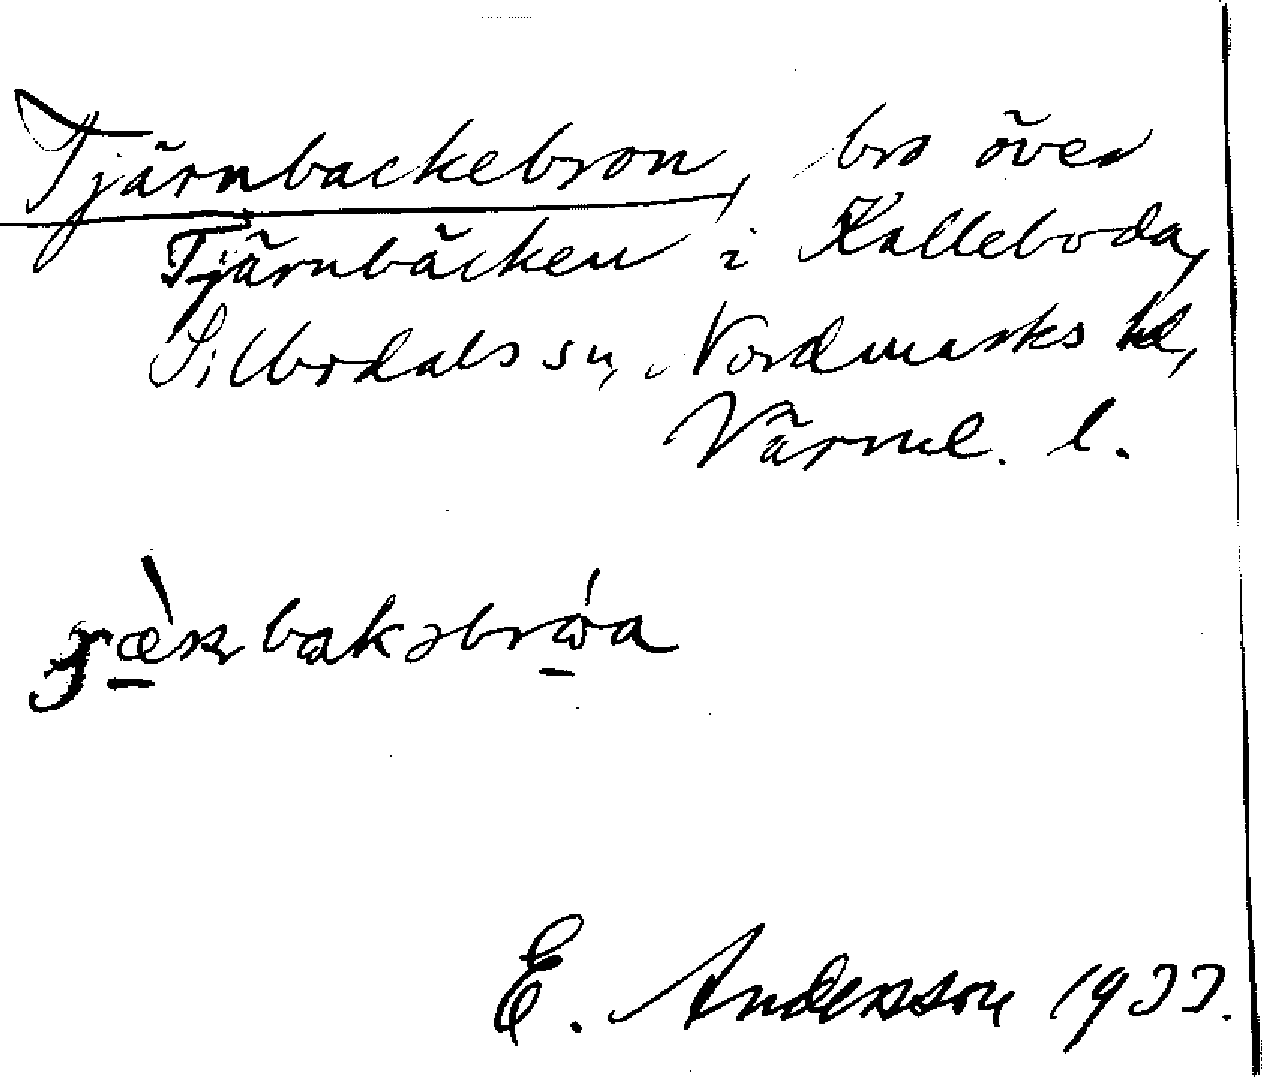 Tjärnbackebron, bro över
Tjärnbäcken i Kalleboda,
Silbodals sn, Nordmarks hd,
Värml. l.
E. Andersson 1933.